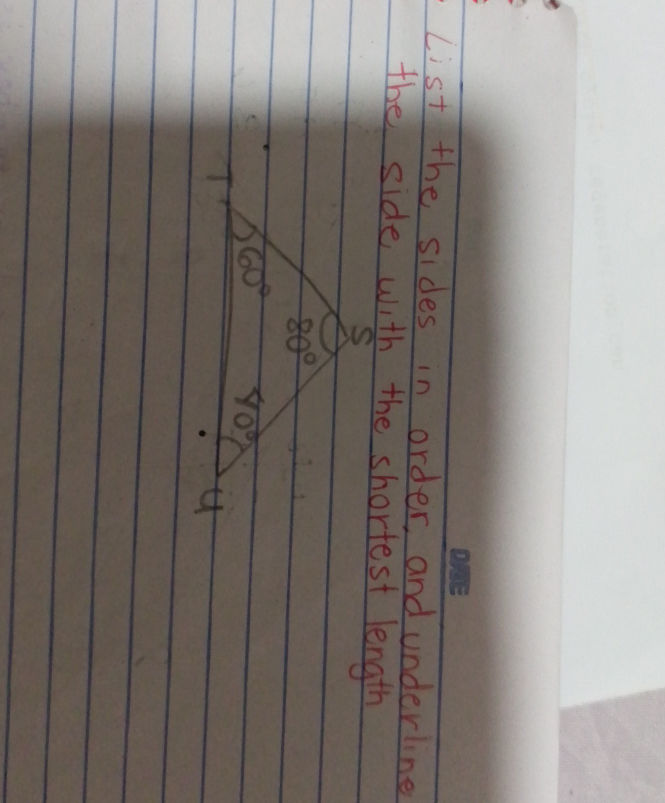 DATE
List the sides in order, and underline
the side with the shortest length
S
80°
T 60° 40° U